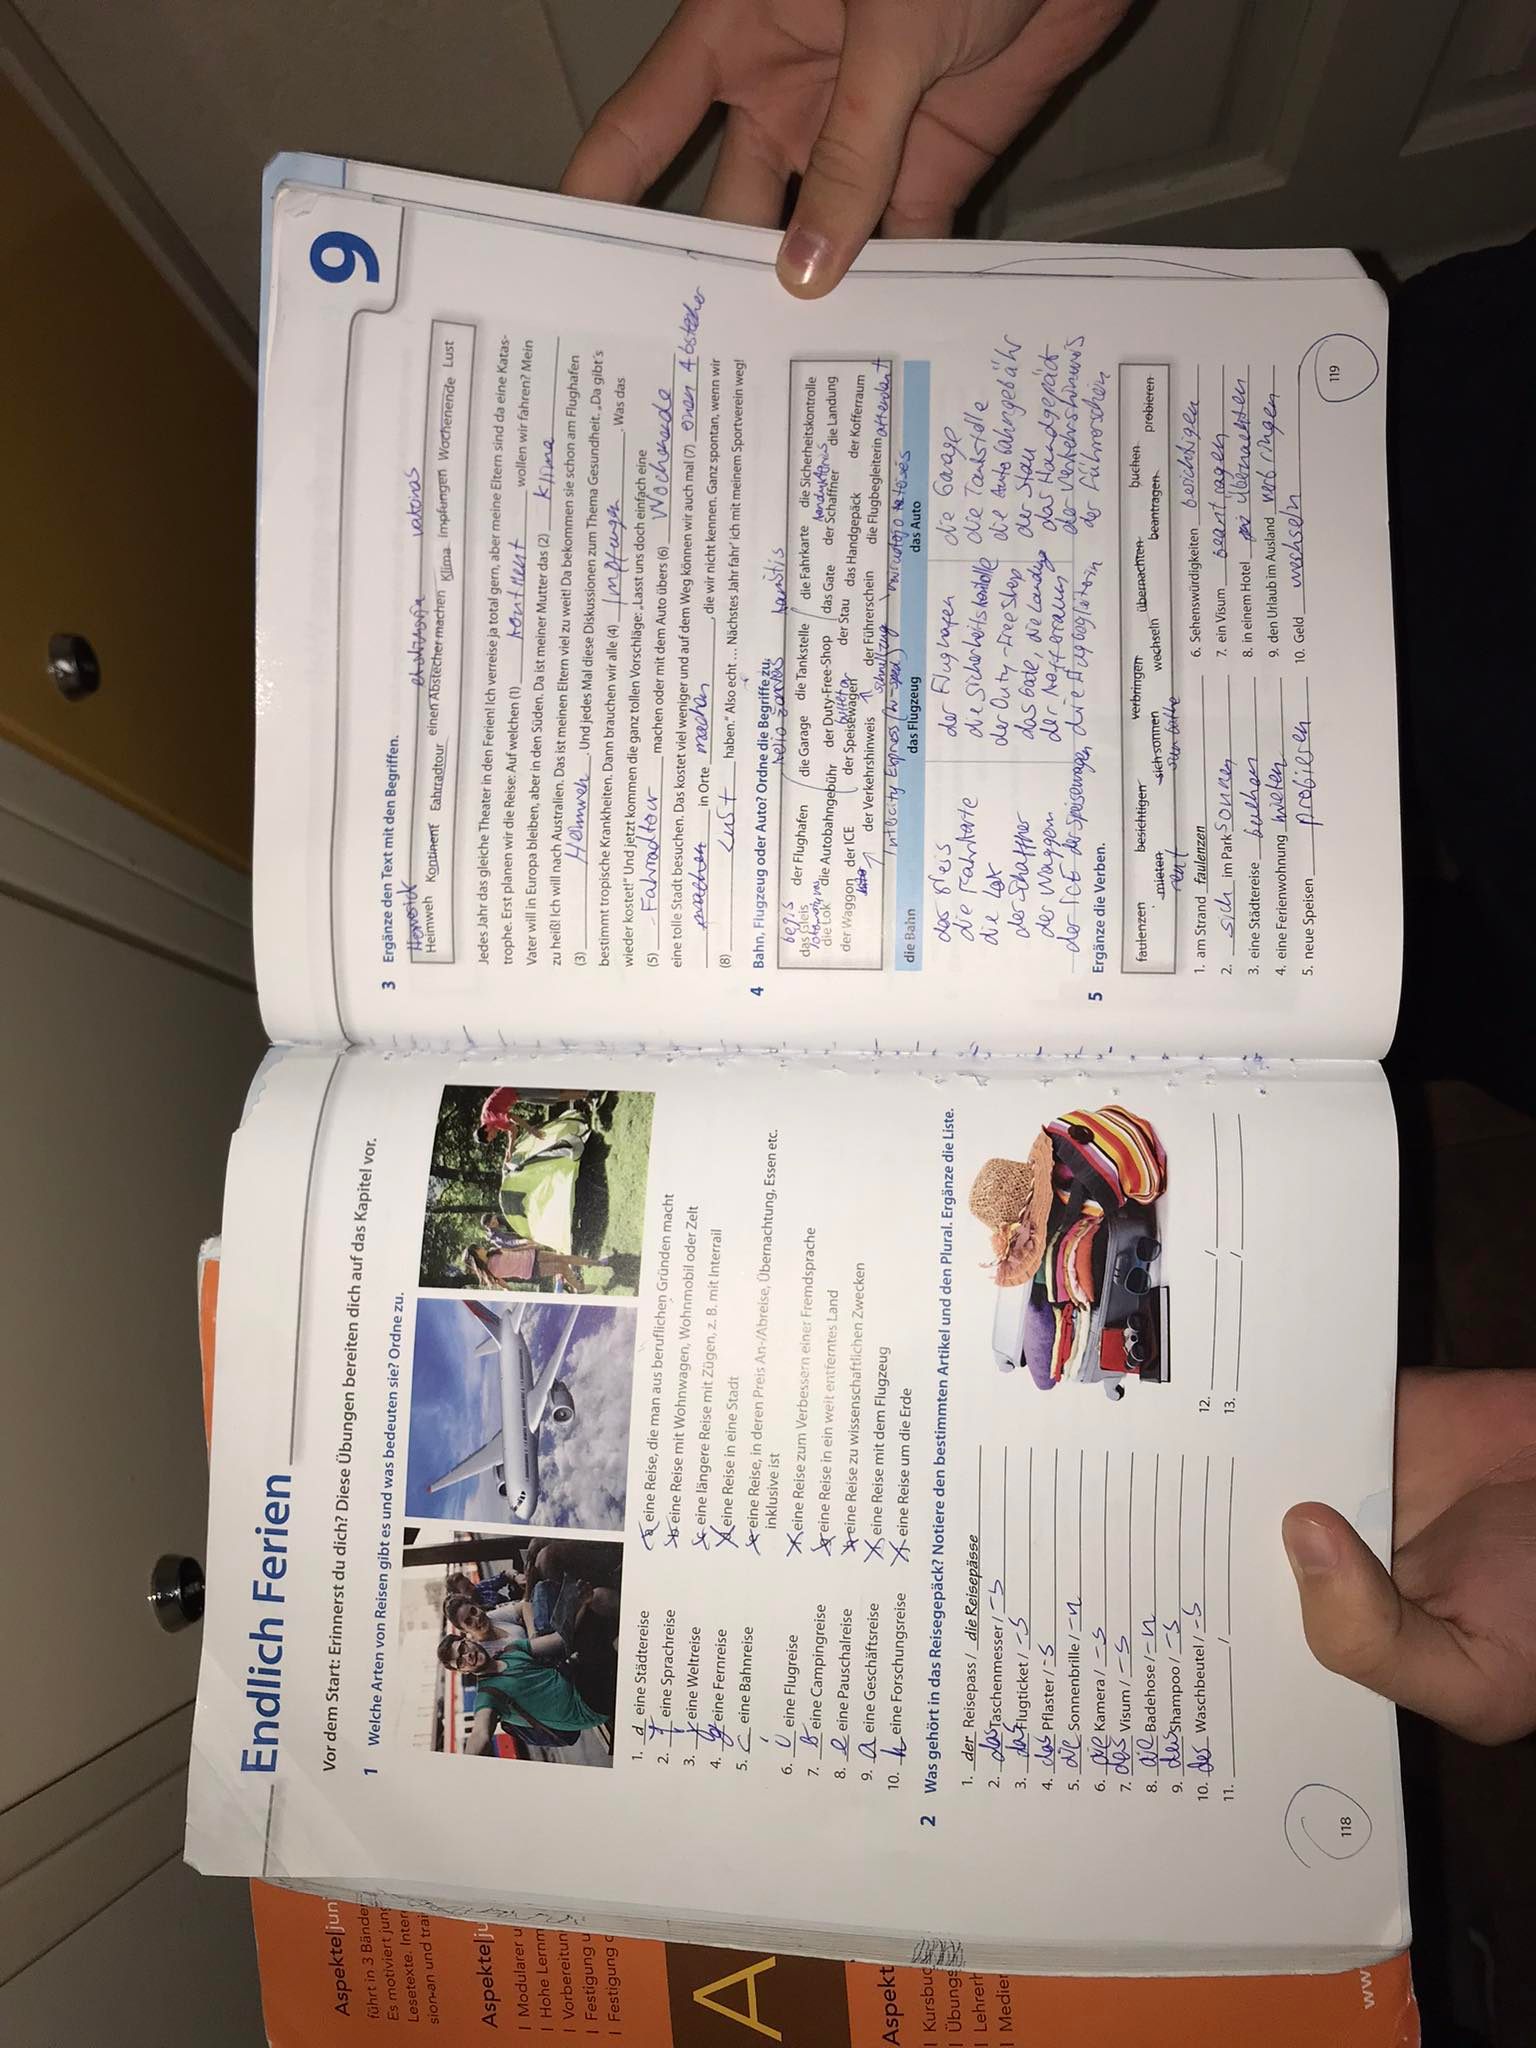 Aspekte|juni
führt in 3 Bände
Es motiviert jung
Lesetexte. Inter
sion an und trai
Aspekte|ju
| Modularer u
| Hohe Lernm
| Vorbereitun
| Festigung u
| Festigung d
A
Aspekt
| Kursbuc
| Übungs
| Lehrerh
| Medien
www
Endlich Ferien
Vor dem Start: Erinnerst du dich? Diese Übungen bereiten dich auf das Kapitel vor.
1 Welche Arten von Reisen gibt es und was bedeuten sie? Ordne zu.
1. d eine Städtereise
2. f eine Sprachreise
3. j eine Weltreise
4. g eine Fernreise
5. c eine Bahnreise
6. i eine Flugreise
7. b eine Campingreise
8. e eine Pauschalreise
9. a eine Geschäftsreise
10. h eine Forschungsreise
a eine Reise, die man aus beruflichen Gründen macht
b eine Reise mit Wohnwagen, Wohnmobil oder Zelt
c eine längere Reise mit Zügen, z. B. mit Interrail
d eine Reise in eine Stadt
e eine Reise, in deren Preis An-/Abreise, Übernachtung, Essen etc.
inklusive ist
f eine Reise zum Verbessern einer Fremdsprache
g eine Reise in ein weit entferntes Land
h eine Reise zu wissenschaftlichen Zwecken
i eine Reise mit dem Flugzeug
j eine Reise um die Erde
2 Was gehört in das Reisegepäck? Notiere den bestimmten Artikel und den Plural. Ergänze die Liste.
1. der Reisepass / die Reisepässe
2. das Taschenmesser / -s
3. das Flugticket / -s
4. das Pflaster / -s
5. die Sonnenbrille / -n
6. die Kamera / -s
7. das Visum / -s
8. die Badehose / -n
9. das Shampoo / -s
10. der Waschbeutel / -s
11. /
12. /
13. /
118
9
3 Ergänze den Text mit den Begriffen.
Homesick vakcinas
Heimweh Kontinent Fahrradtour einen Abstecher machen Klima Impfungen Wochenende Lust
Jedes Jahr das gleiche Theater in den Ferien! Ich verreise ja total gern, aber meine Eltern sind da eine Katas-
trophe. Erst planen wir die Reise: Auf welchen (1) Kontinent wollen wir fahren? Mein
Vater will in Europa bleiben, aber in den Süden. Da ist meiner Mutter das (2) Klima
zu heiß! Ich will nach Australien. Das ist meinen Eltern viel zu weit! Da bekommen sie schon am Flughafen
(3) Heimweh . Und jedes Mal diese Diskussionen zum Thema Gesundheit. „Da gibt's
bestimmt tropische Krankheiten. Dann brauchen wir alle (4) Impfungen . Was das
wieder kostet!“ Und jetzt kommen die ganz tollen Vorschläge: „Lasst uns doch einfach eine
(5) Fahrradtour machen oder mit dem Auto übers (6) Wochenende
eine tolle Stadt besuchen. Das kostet viel weniger und auf dem Weg können wir auch mal (7) einen Abstecher
machen in Orte machen , die wir nicht kennen. Ganz spontan, wenn wir
(8) Lust haben.“ Also echt … Nächstes Jahr fahr' ich mit meinem Sportverein weg!
4 Bahn, Flugzeug oder Auto? Ordne die Begriffe zu.
begis
das Gleis der Flughafen die Garage die Tankstelle die Fahrkarte die Sicherheitskontrolle
die Lok die Autobahngebühr der Duty-Free-Shop das Gate der Schaffner die Landung
der Waggon der ICE der Speisewagen der Stau das Handgepäck der Kofferraum
der Verkehrshinweis der Führerschein die Flugbegleiterin attendant
Intercity Express schnellzug
die Bahn das Flugzeug das Auto
das Gleis der Flughafen die Garage
die Fahrkarte die Sicherheitskontrolle die Tankstelle
die Lok der Duty-Free Shop die Autobahngebühr
der Schaffner das Gate, die Landung der Stau
der Waggon der Kofferraum das Handgepäck
der ICE der Speisewagen die Flugbegleiterin der Verkehrshinweis
der Führerschein
5 Ergänze die Verben.
faulenzen besichtigen verbringen übernachten buchen
mieten sich sonnen wechseln beantragen probieren
rent sun bathe
1. am Strand faulenzen
2. sich im Park sonnen
3. eine Städtereise buchen
4. eine Ferienwohnung mieten
5. neue Speisen probieren
6. Sehenswürdigkeiten besichtigen
7. ein Visum beantragen
8. in einem Hotel übernachten
9. den Urlaub im Ausland verbringen
10. Geld wechseln
119